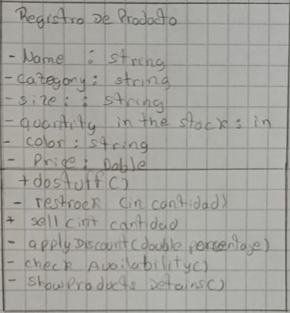 Registro De Producto
- Name : string
- category : string
- size : : string
- quantity in the stock : in
- color : string
- Price : Doble
+ dostuff()
- restrock (in cantidad)
+ sell (int cantidad
- apply Discount (double porcentage)
- check Availability()
- show Products Detains()